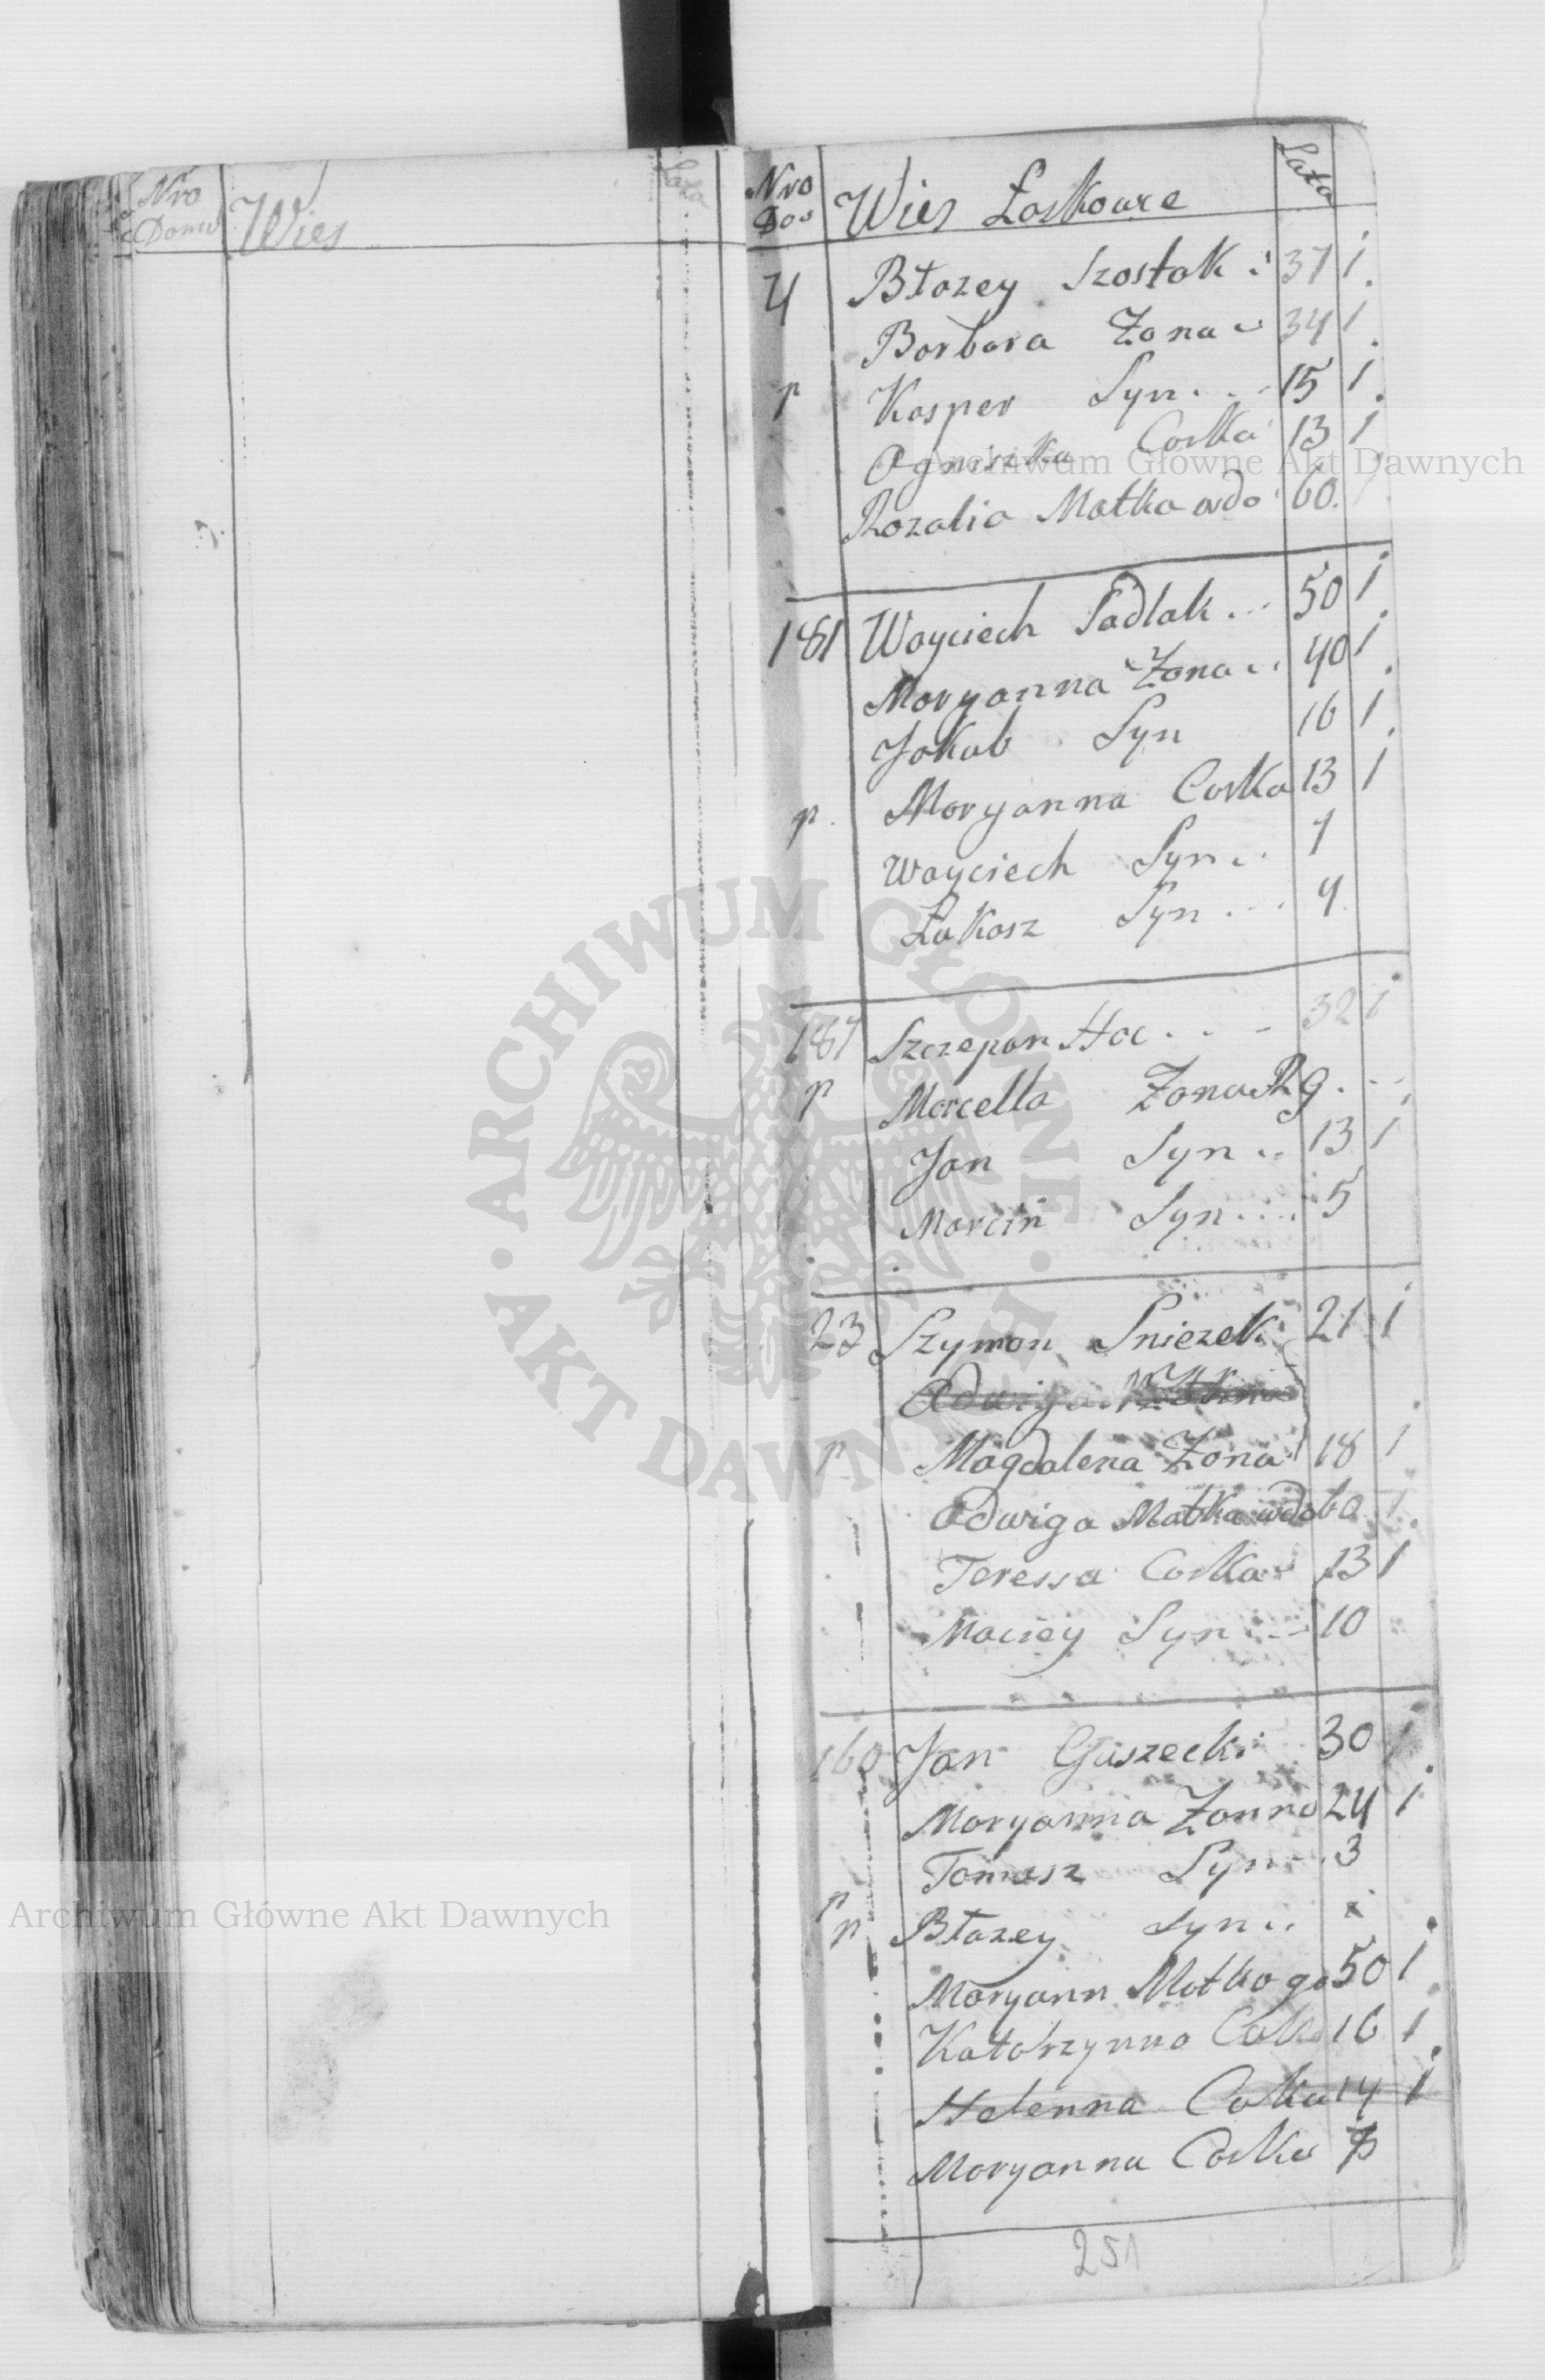 Nro
Domu
Wies
Lata
Nro
Do
Wies Łoskowe
Lata
4 Błazey Szostak 37 1
Borbara Zona 34 1
p Kasper Syn 15 1
Agniszka Corka 13 1
Rozalia Matka wdo 60
181 Woyciech Padlak 50 1
Moryanna Zona 40 1
Jakub Syn 16 1
p Moryanna Corka 13 1
Woyciech Syn 7
Łukasz Syn 4
187 Szczepan Hoc 32 1
p Marcella Zona Rg
Jan Syn 13 1
Marcin Syn 5
23 Szymon Sniezek 21 1
Adwiga
p Magdalena Zona 18 1
Adwiga Matka wdo 60 1
Teressa Corka 13 1
Maciey Syn 10
160 Jan Guszecki 30 1
Moryanna Zonna 24 1
Tomasz Syn 3
p
p Błazey Syn
Moryann Matka go 50 1
Katarzynna Cok 16 1
Helenna Coka 14 1
Moryanna Corka
251
Archiwum Główne Akt Dawnych
ARCHIWUM GŁÓWNE · AKT DAWNYCH ·
Archiwum Główne Akt Dawnych